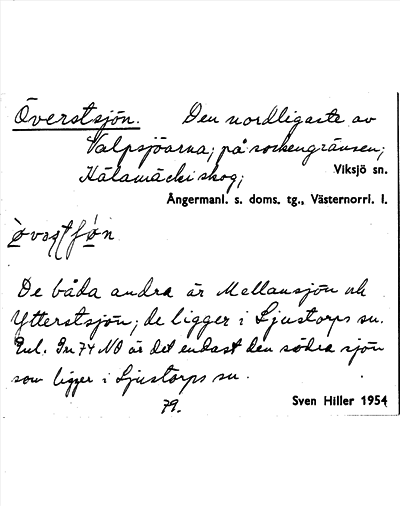 Överstsjön. Den nordligaste av
Valpsjöarna; på sockengränsen;
Kälamäcki skog; Viksjö sn.
Ångermanl. s. doms. tg., Västernorrl. l.
De båda andra är Mellansjön och
Ytterstsjön; de ligger i Ljustorps sn.
Enl. Gn 74 NO är det endast den södra sjön
som ligger i Ljustorps sn.
79.
Sven Hiller 1954